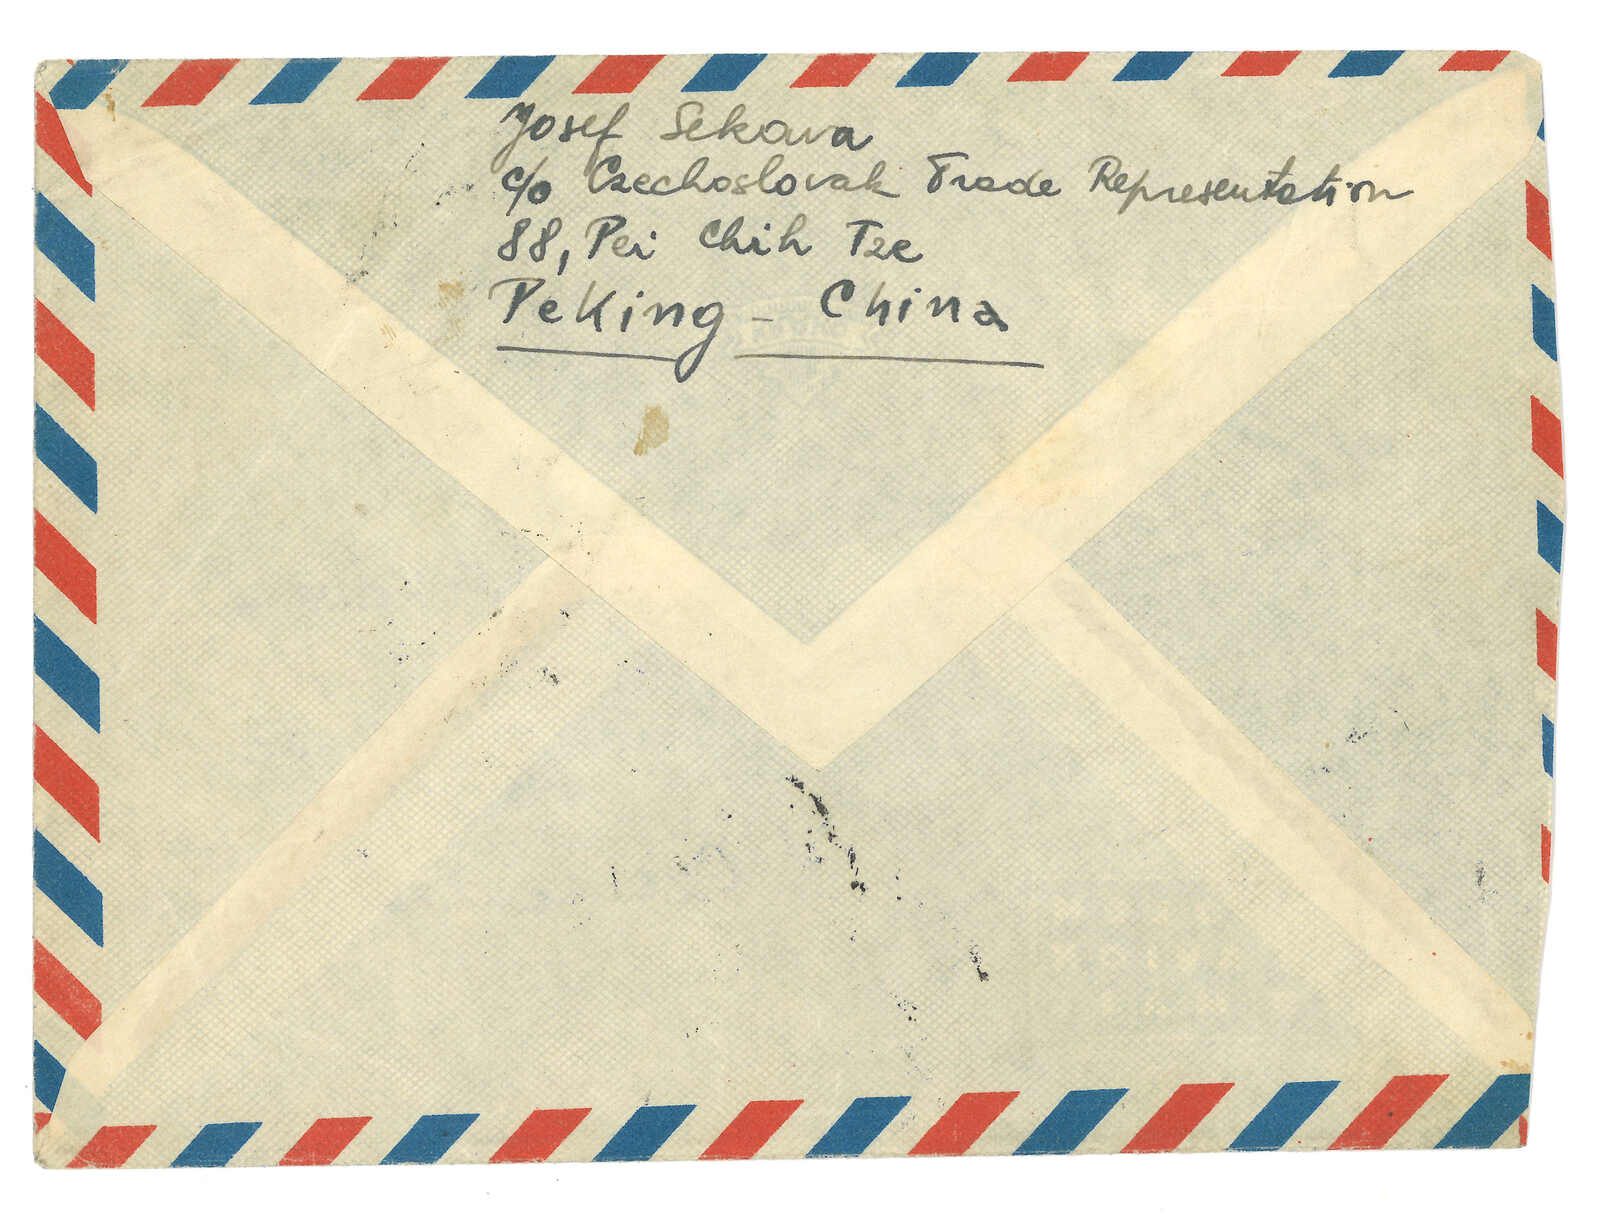 Josef Sekava
c/o Czechoslovak Trade Representation
88, Pei Chih Tze
Peking - China